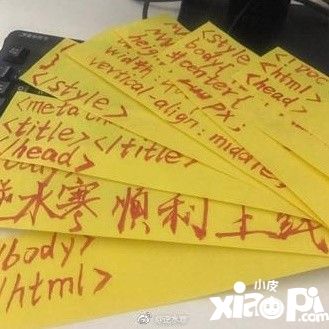 <html>
<head>
<style
body{
width:
px;
vertical align: middle;
</style>
<meta
<title> </title>
/head>
水寒 順利上线
/body>
/html>
小皮
xiaopi
.com